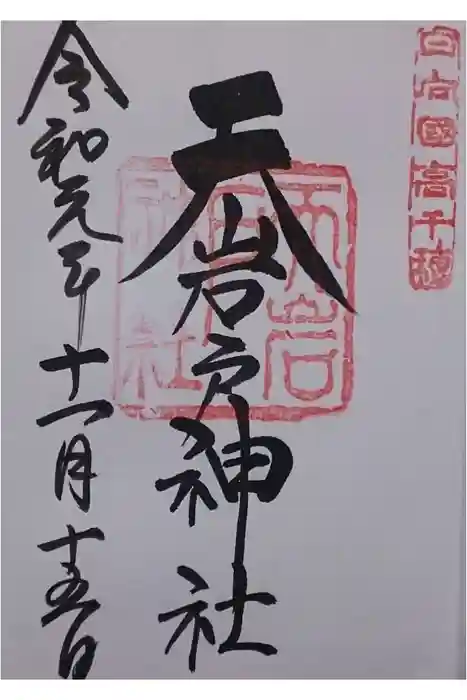 日向國高千穂
天岩戸神社
天岩戸神社
令和元年十一月十五日